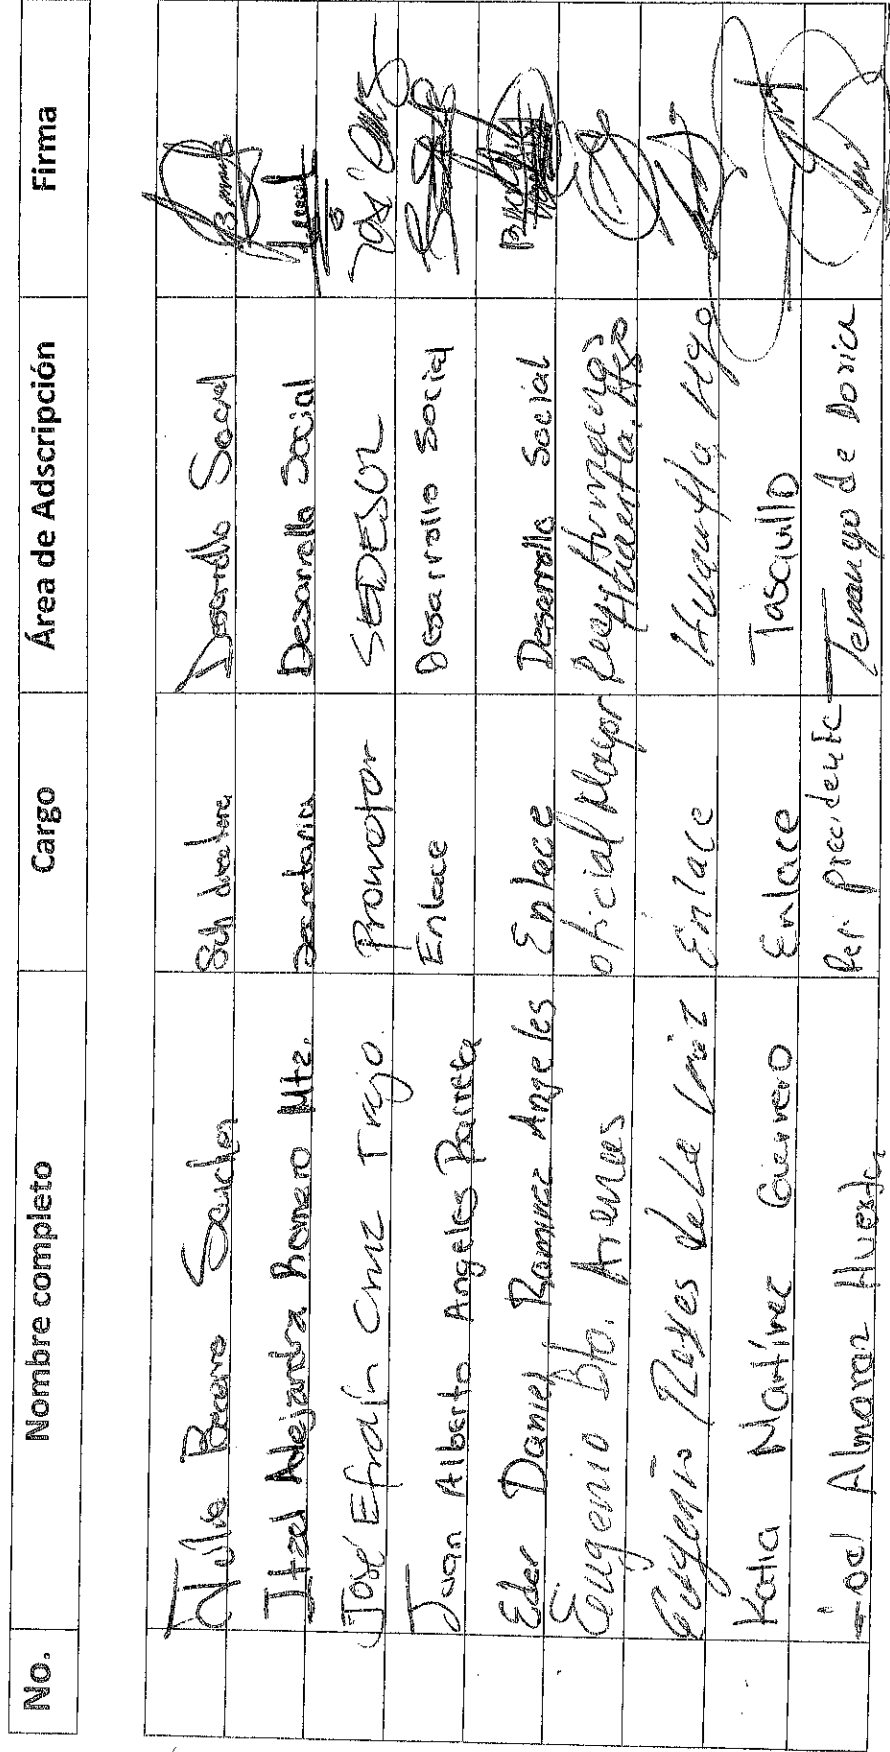 No. Nombre completo Cargo Área de Adscripción Firma
Julia Sanchez Sub directora Desarrollo Social
Itzel Alejandra Romero Mtz. secretaria Desarrollo Social
José Efraín Cruz Trejo. Promotor SEDESOL José Cruz
Juan Alberto Angeles Parrera Enlace Desarrollo Social
Eder Daniel Ramirez Angeles Enlace Desarrollo Social
Eugenio Bto. Arenas oficial Mayor Recursos Humanos Huautla. Hgo
Eugenio Reyes de La Cruz Enlace Huautla, Hgo
Katia Martínez Guerrero Enlace Tasquillo
Almaraz Huerta Tenango de Doria